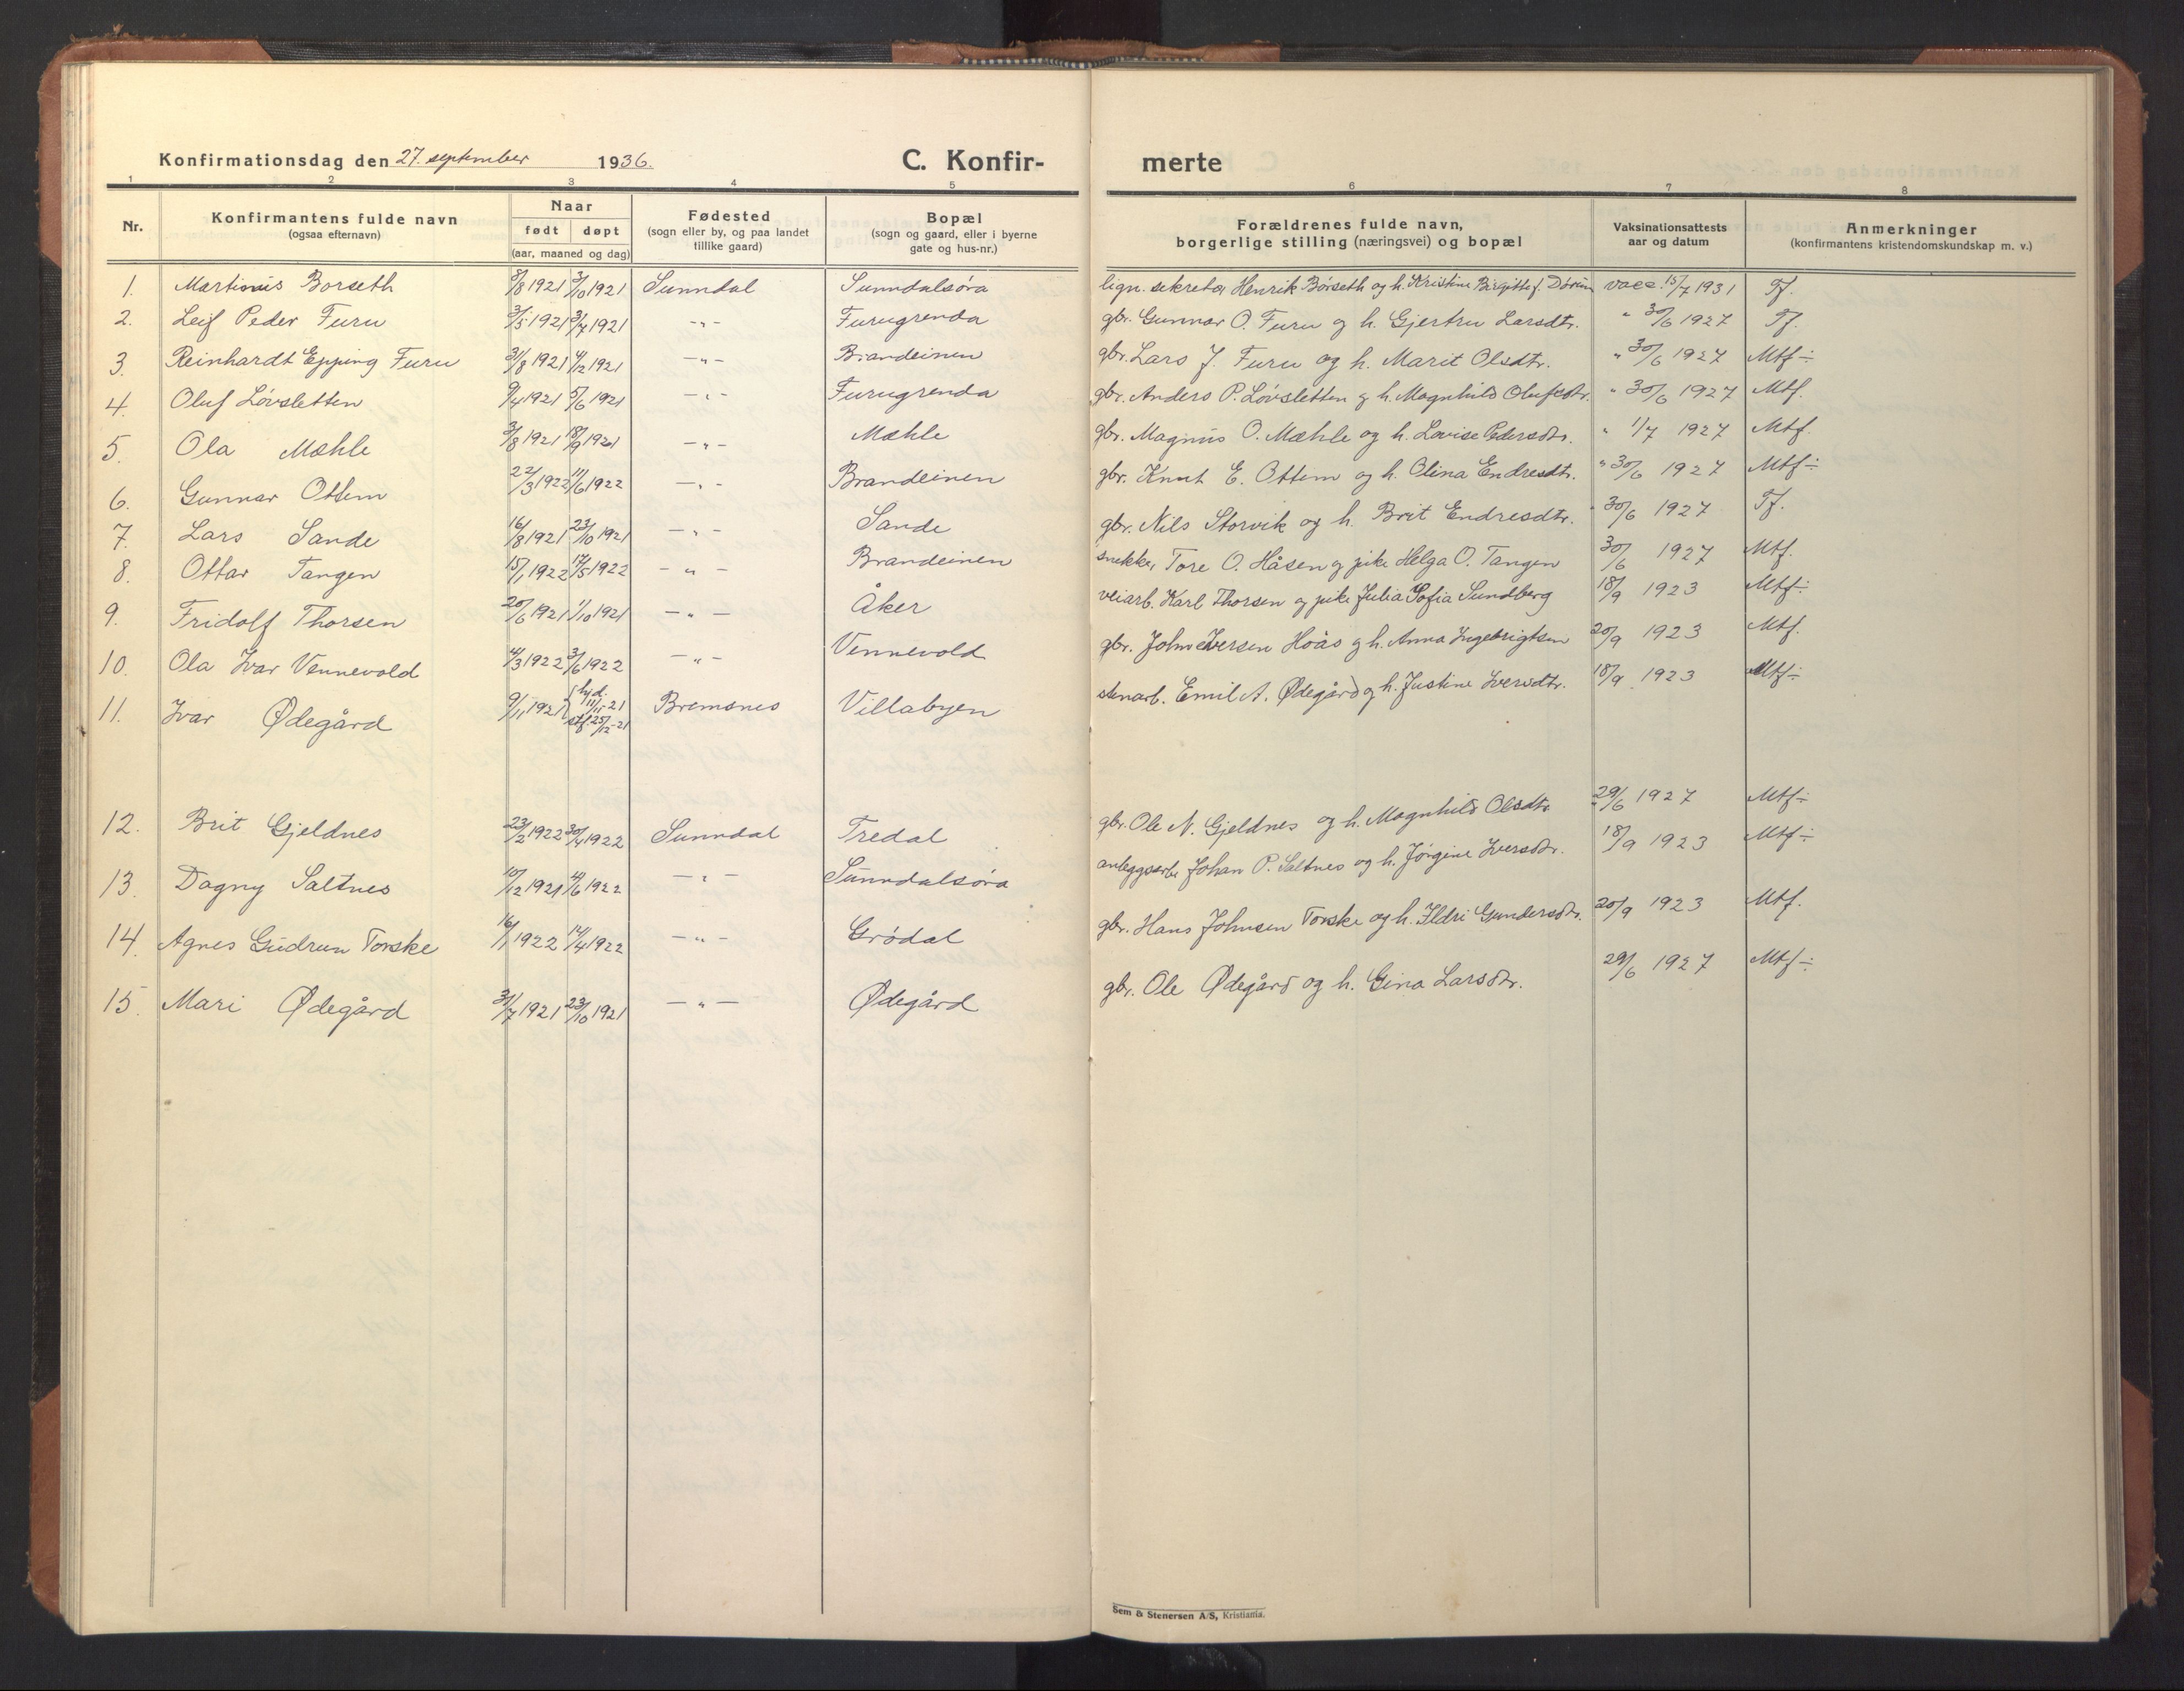 Konfirmationsdag den 27. september 1936. C. Konfirmerte
1 2 3 4 5 6 7 8
Nr. | Konfirmantens fulde navn (ogsaa efternavn) | Naar født døpt (aar, maaned og dag) | Fødested (sogn eller by, og paa landet tillike gaard) | Bopæl (sogn og gaard, eller i byerne gate og hus-nr.) | Forældrenes fulde navn, borgerlige stilling (næringsvei) og bopæl | Vaksinationsattests aar og datum | Anmerkninger (konfirmantens kristendomskundskap m. v.)
1. Martinus Borseth /8 1921 3/10 1921 Sunndal Sunndalsøra lign. sekretær Henrik Børseth og h. Kristine Birgitte f. Døvin vacc. 15/7 1931 Tf.
2. Leif Peder Furu 3/5 1921 3/7 1921 -"- Furugrenda gbr. Gunnar O. Furu og h. Gjertru Larsdtr. " 30/6 1927 Tf.
3. Reinhardt Epping Furu 31/8 1921 4/12 1921 -"- Brandeinen gbr. Lars J. Furu og h. Marit Olsdtr. " 30/6 1927 Mtf ÷
4. Oluf Løvsletten 9/4 1921 5/6 1921 -"- Furugrenda gbr. Anders P. Løvsletten og h. Magnhild Olufsdtr. " 30/6 1927 Mtf.
5. Ola Mæhle 3/8 1921 18/9 1921 -"- Mæhle gbr. Magnus O. Mæhle og h. Lovise Pedersdtr. " 1/7 1927 Mtf.
6. Gunnar Ottem 22/3 1922 11/6 1922 -"- Brandeinen gbr. Knut E. Ottem og h. Olina Endresdtr. " 30/6 1927 Mtf ÷
7. Lars Sande 16/8 1921 23/10 1921 -"- Sande gbr. Nils Storvik og h. Brit Endresdtr. " 30/6 1927 Tf.
8. Ottar Tangen 15/1 1922 17/5 1922 -"- Brandeinen snekker Tore O. Håsen og pike Helga O. Tangen 30/6 1927 Mtf.
9. Fridolf Thorsen 20/6 1921 1/10 1921 -"- Åker veiarb. Karl Thorsen og pike Julia Sofia Sundberg 18/9 1923 Mtf ÷
10. Ola Ivar Vennevold 4/3 1922 3/6 1922 -"- Vennevold gbr. John Iversen Hoås og h. Anna Ingebrigtsen 20/9 1923 Mtf.
11. Ivar Ødegård 9/11 1921 hjd. 11/11-21 stf. 25/12-21 Bremsnes Villabyen stenarb. Emil A. Ødegård og h. Justine Iversdtr. 18/9 1923 Mtf ÷
12. Brit Gjeldnes 23/2 1922 30/4 1922 Sunndal Tredal gbr. Ole N. Gjeldnes og h. Magnhild Olsdtr 29/6 1927 Mtf ÷
13. Dagny Saltnes 10/12 1921 4/6 1922 -"- Sunndalsøra anleggsarb. Johan P. Saltnes og h. Jørgine Iversdtr. 18/9 1923 Mtf ÷
14. Agnes Gudrun Torske 16/1 1922 17/4 1922 -"- Grødal gbr. Hans Johnsen Torske og h. Ildri Gundersdtr. 20/9 1923 Mtf.
15. Mari Ødegård 31/7 1921 23/10 1921 -"- Ødegård gbr. Ole Ødegård og h. Gina Larsdtr. 29/6 1927 Mtf ÷
Sem & Stenersen A/S, Kristiania.